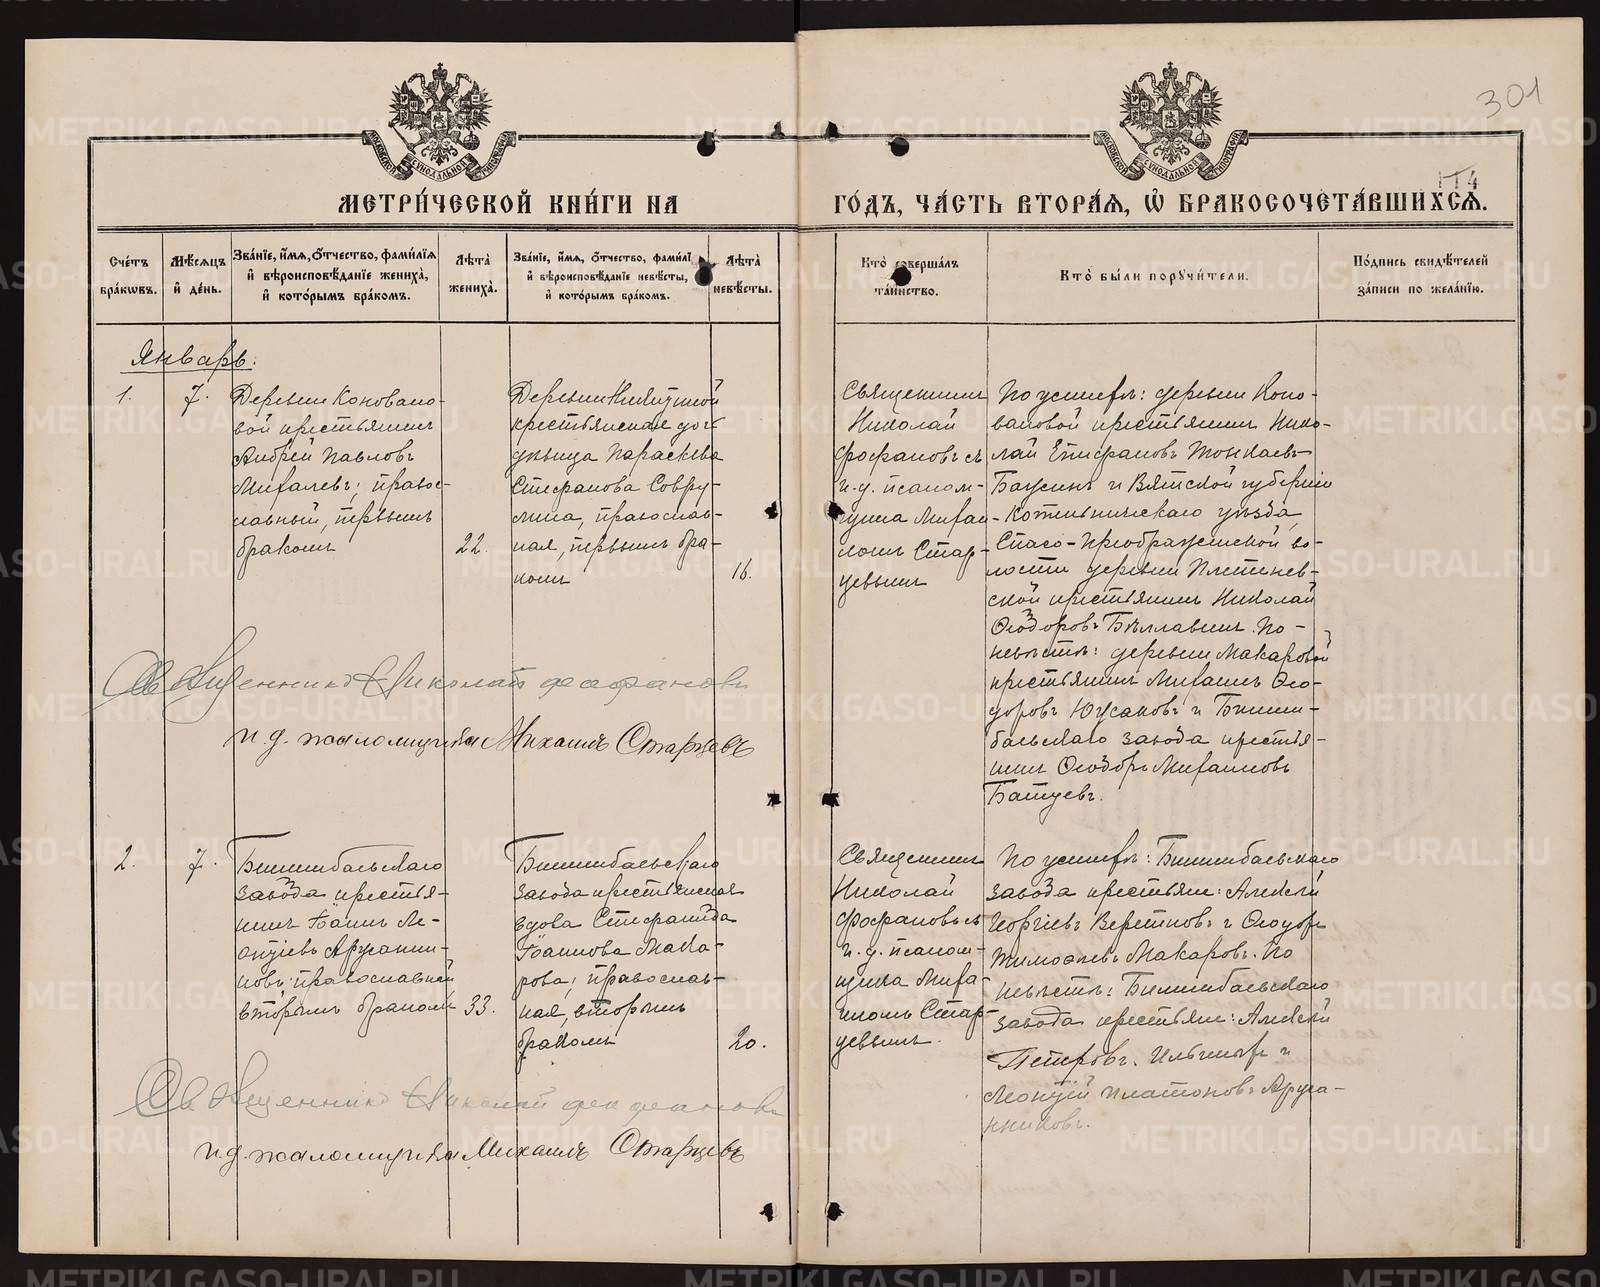 301
174
МЕТРИ́ЧЕСКОЙ КНИ́ГИ НА ГО́ДЪ, ЧА́СТЬ ВТОРА́Я, Ѡ҆ БРАКОСОЧЕТА́ВШИХСѦ.
Сче́тъ бра́кѡвъ.
Мѣ́сѧцъ и҆ де́нь.
Зва́нїе, и҆́мѧ, ѻ҆́тчество, фами́лїѧ и҆ вѣроисповѣ́данїе жениха̀, и҆ кото́рымъ бра́комъ.
Лѣ́та̀ жениха̀.
Зва́нїе, и҆́мѧ, ѻ҆́тчество, фами́лї и҆ вѣроисповѣ́данїе невѣ́сты, и҆ кото́рымъ бра́комъ.
Лѣ́та̀ невѣ́сты.
Кто̀ соверша́лъ та́инство.
Кто̀ бы́ли порꙋчи́тели.
По́дпись свидѣ́телей за́писи по жела́нїю.
Январь.
1.
7.
Деревни Коновало-
вой крестьянинъ
Андрей Павловъ
Михалевъ; правос-
лавный, первымъ
бракомъ
22.
Деревни
крестьянская до-
Параскева
Стефанова
православ-
ная, первымъ бра-
комъ
16.
Священникъ
Николай
Феофановъ съ
и. д. псалом-
щика Михаи-
ломъ Стар-
цевымъ
По женихѣ: деревни Коно-
валовой крестьянинъ Нико-
лай Епифановъ
и Вятской губернiи
Котельническаго уѣзда,
Спасо-Преображенской во-
лости деревни
ской крестьянинъ Николай
Ѳеодоровъ По
невѣстѣ: деревни Макаровой
крестьянинъ Михаилъ Ѳео-
доровъ Юсаковъ и Билим-
баевскаго завода крестья-
нинъ Ѳеодоръ Михаиловъ
Батуевъ.
Священникъ Николай Феофановъ
и. д. псаломщика Михаилъ Старцевъ
2.
7.
Билимбаевскаго
завода крестья-
нинъ Iоаннъ Ле-
онтiевъ Аружанни-
ковъ; православный
вторымъ бракомъ
33.
Билимбаевскаго
завода крестьянская
вдова Стефанида
Iоаннова Мака-
рова; православ-
ная, вторымъ
бракомъ
20.
Священникъ
Николай
Феофановъ съ
и. д. псалом-
щика Миха-
иломъ Стар-
цевымъ.
По женихѣ: Билимбаевскаго
завода крестьяне: Алексѣй
Георгiевъ и Ѳеодоръ
Тимоѳеевъ Макаровъ. По
невѣстѣ: Билимбаевскаго
завода крестьяне: Алексѣй
Петровъ и
Леонтiй Платоновъ Аружа-
нниковъ.
Священникъ Николай Феофановъ
и. д. псаломщика Михаилъ Старцевъ
METRIKI.GASO-URAL.RU